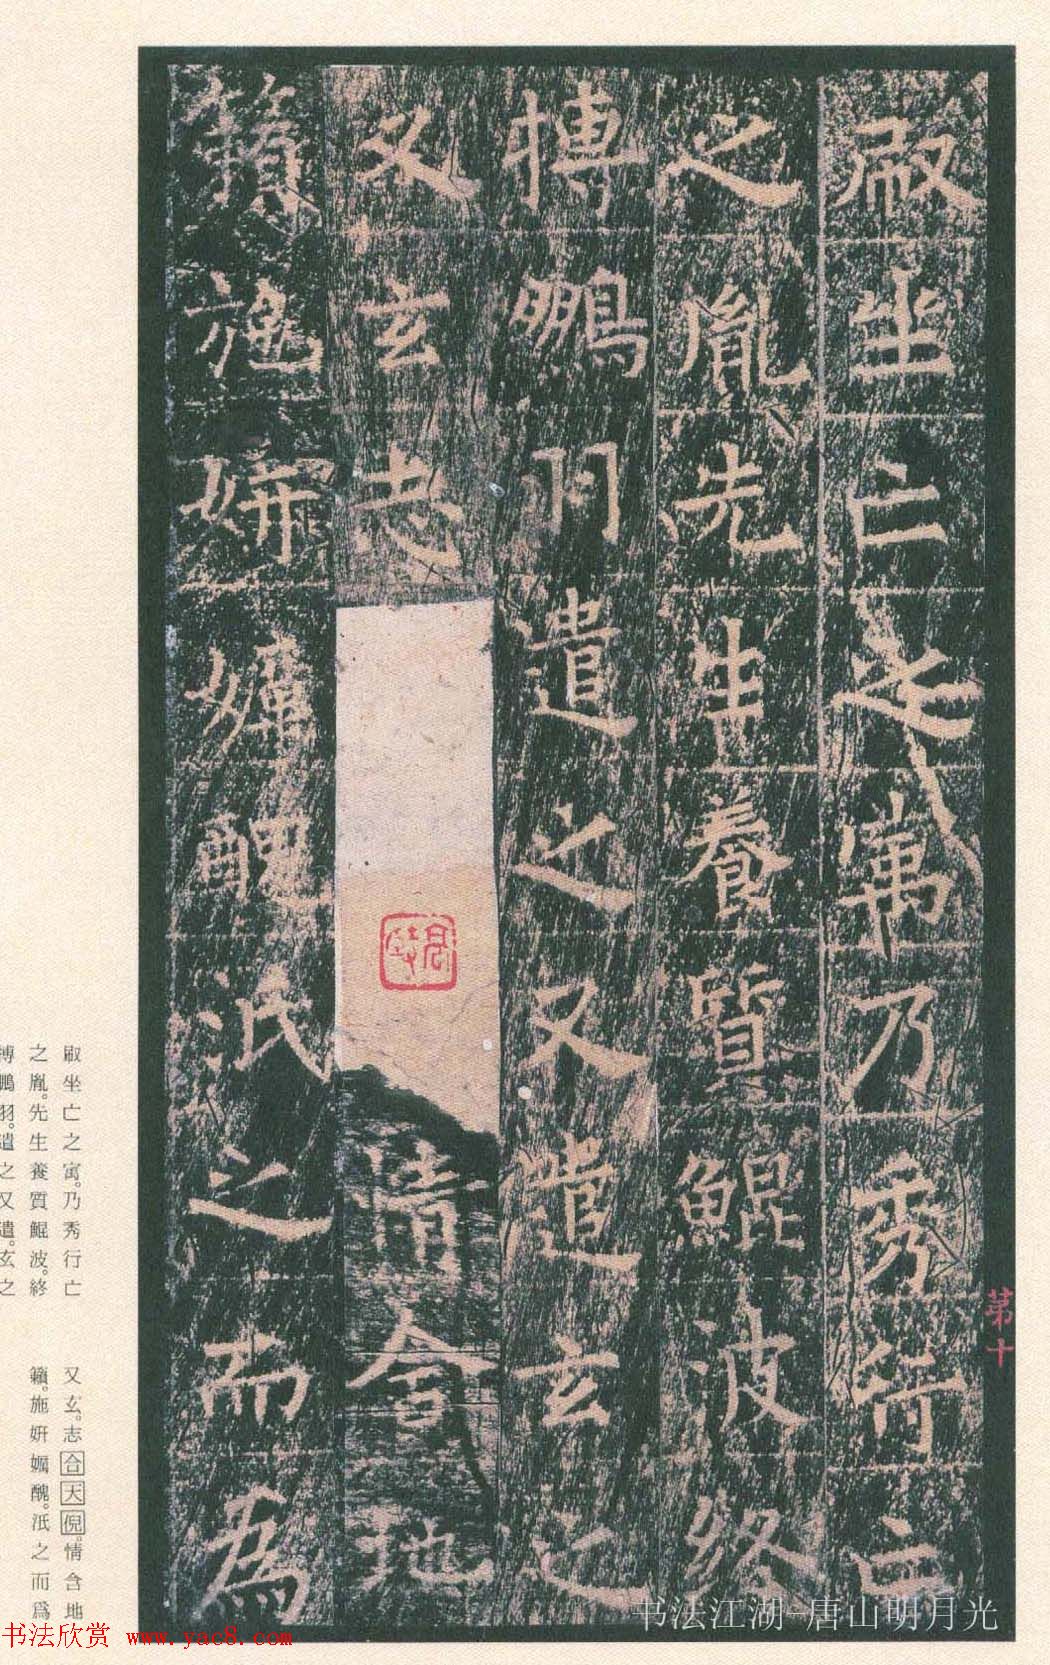 厰坐亡之㝢乃秀行亡
之胤先生養質鯤波終
摶鵬羽遣之又遣玄之
又玄志情含地
籟施妍嫫醜泯之而為
第十
㕞坐亡之寓。乃秀行亡
之胤。先生養質鯤波。終
摶鵬羽。遣之又遣。玄之
又玄。志合天倪。情含地
籟。施妍嫫醜。泯之而爲
书法江湖-唐山明月光
书法欣赏 www.yac8.com